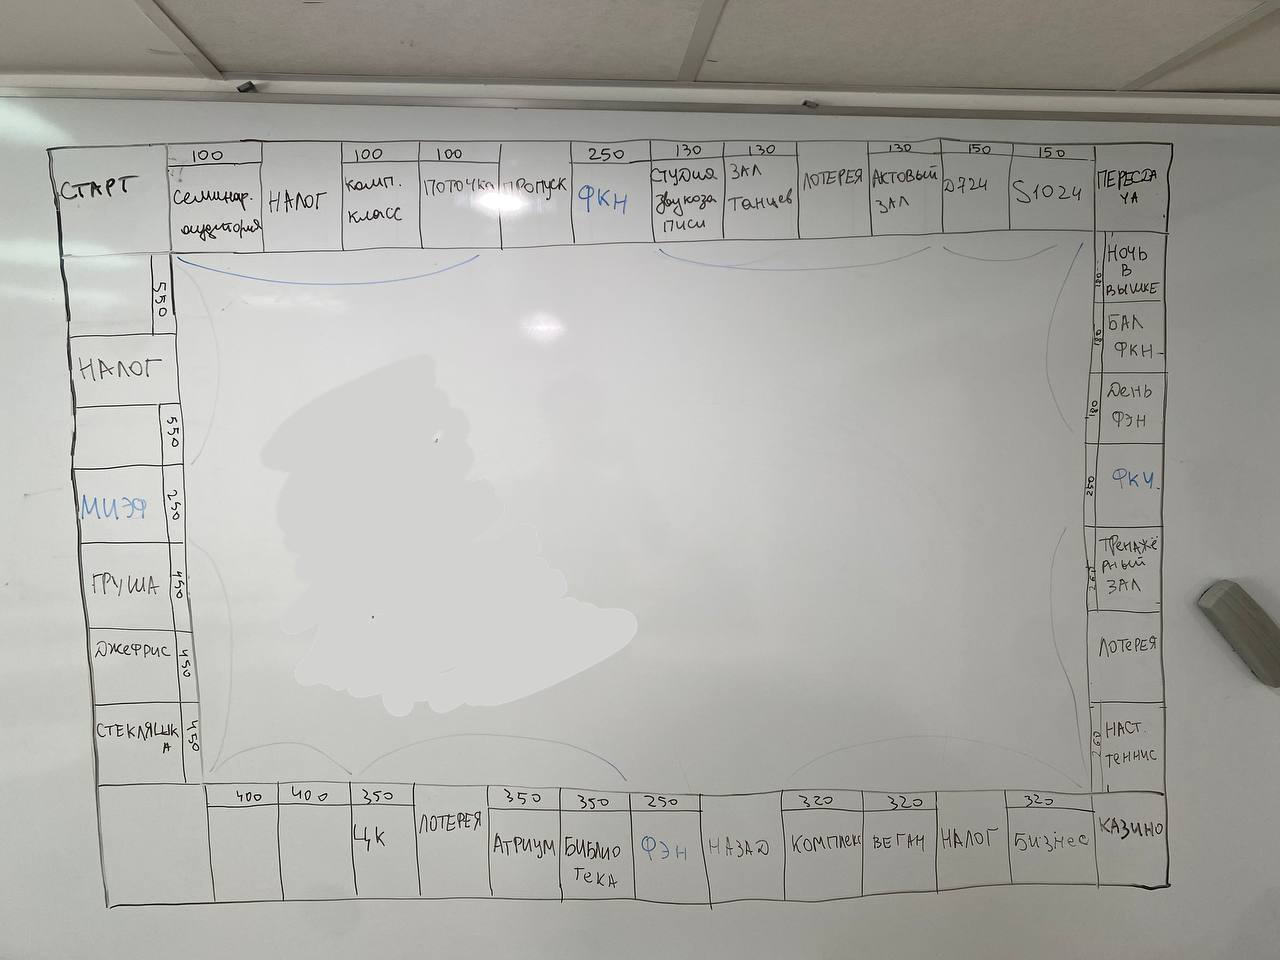 СТАРТ
100
семинар.
аудитория
НАЛОГ
100
комп.
класс
100
ПОТОЧКА
ПРОПУСК
250
ФКН
130
СТУДИЯ
звукоза
писи
130
ЗАЛ
танцев
ЛОТЕРЕЯ
130
АКТОВЫЙ
ЗАЛ
150
D724
150
S1024
ПЕРЕСДА
ЧА
180
НОЧЬ
В
ВЫШКЕ
180
БАЛ
ФКН
180
День
ФЭН
250
ФКИ
260
ТРЕНАЖЁ
РНЫЙ
ЗАЛ
ЛОТЕРЕЯ
260
НАСТ.
ТЕННИС
КАЗИНО
320
БИЗНЕС
НАЛОГ
320
ВЕГАН
320
КОМПЛЕКС
НАЗАД
250
ФЭН
350
БИБЛИО
ТЕКА
350
АТРИУМ
ЛОТЕРЕЯ
350
ЦК
400
400
450
СТЕКЛЯШК
А
450
ДЖЕФРИС
450
ГРУША
250
МИЭФ
550
НАЛОГ
550